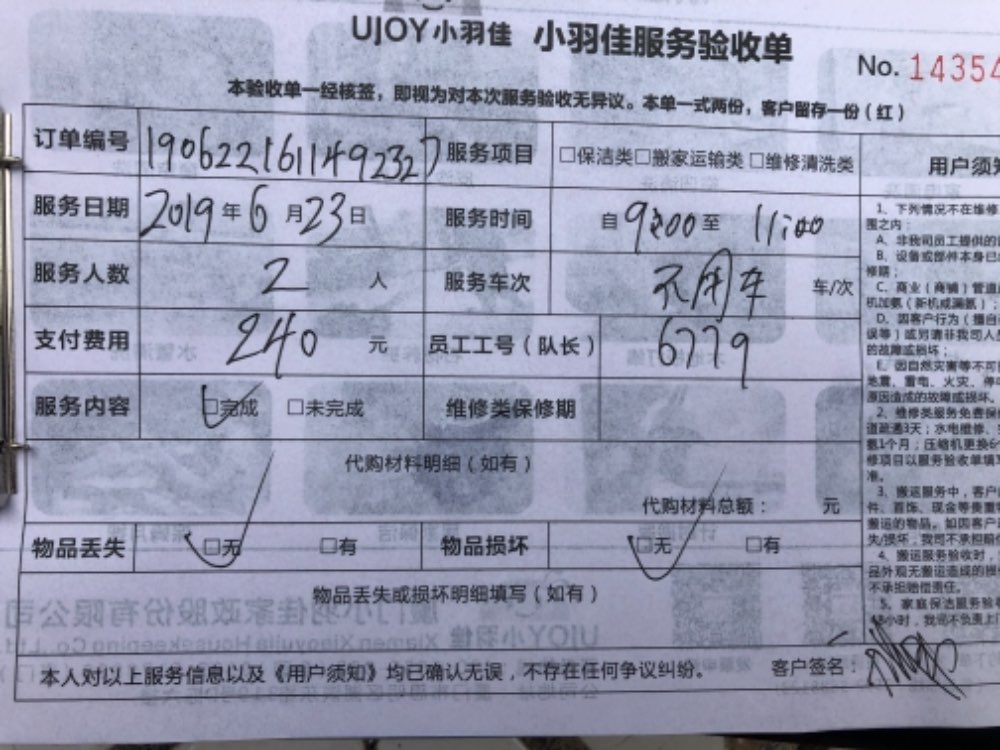 UJOY小羽佳 小羽佳服务验收单
No. 14354
本验收单一经核签，即视为对本次服务验收无异议。本单一式两份，客户留存一份（红）
订单编号 1906221611492327 服务项目 □保洁类□搬家运输类□维修清洗类
服务日期 2019年6月23日 服务时间 自9:00至11:00
服务人数 2人 服务车次 不用车 车/次
支付费用 240元 员工工号（队长） 6779
服务内容 □完成 □未完成 维修类保修期
代购材料明细（如有）
代购材料总额： 元
物品丢失 □无 □有 物品损坏 □无 □有
物品丢失或损坏明细填写（如有）
本人对以上服务信息以及《用户须知》均已确认无误，不存在任何争议纠纷。 客户签名：
用户须知
1、下列情况不在维修
围之内：
A、非我司员工提供的
B、设备或部件本身已
修期；
C、商业（商铺）管道
机加氨（新机或漏氨）；
D、因客户行为（擅自
误等）或另请非我司人
的故障或损坏；
E、因自然灾害等不可
地震、雷电、火灾、停
原因造成的故障或损坏。
2、维修类服务免费保
道疏通3天；水电维修、
氨1个月；压缩机更换6
修项目以服务验收单填
准。
3、搬运服务中，客户
件、首饰、现金等贵重
搬运的物品。如因客户
失/损坏，我司不承担赔
4、搬运服务验收时，
品外观无搬运造成的损
不承担赔偿责任。
5、家庭保洁服务验
48小时，我司不负责上